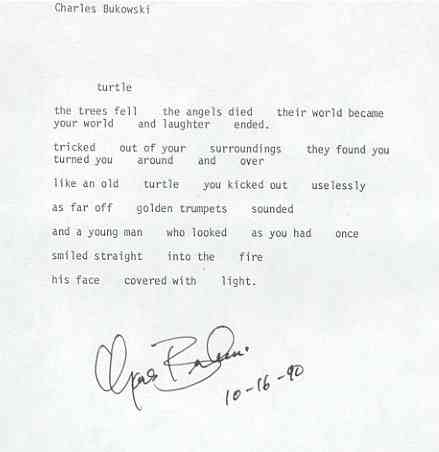 Charles Bukowski
turtle
the trees fell    the angels died    their world became
your world    and laughter    ended.
tricked    out of your    surroundings    they found you
turned you    around    and    over
like an old    turtle    you kicked out    uselessly
as far off    golden trumpets    sounded
and a young man    who looked    as you had    once
smiled straight    into the    fire
his face    covered with    light.
10-16-90